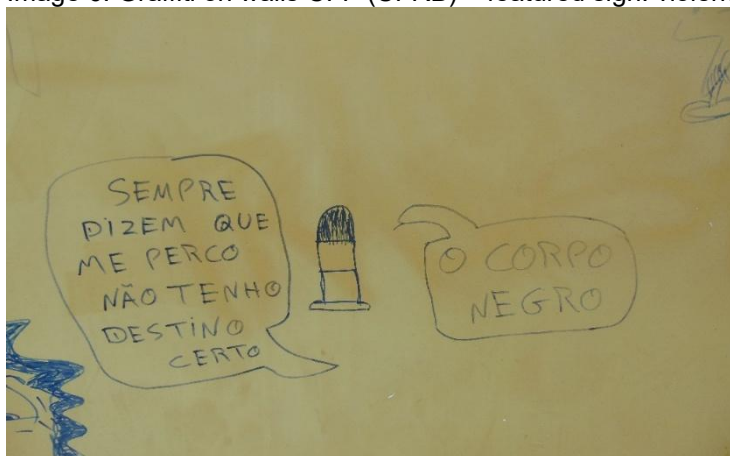 SEMPRE
DIZEM QUE
ME PERCO
NÃO TENHO
DESTINO
CERTO
O CORPO
NEGRO